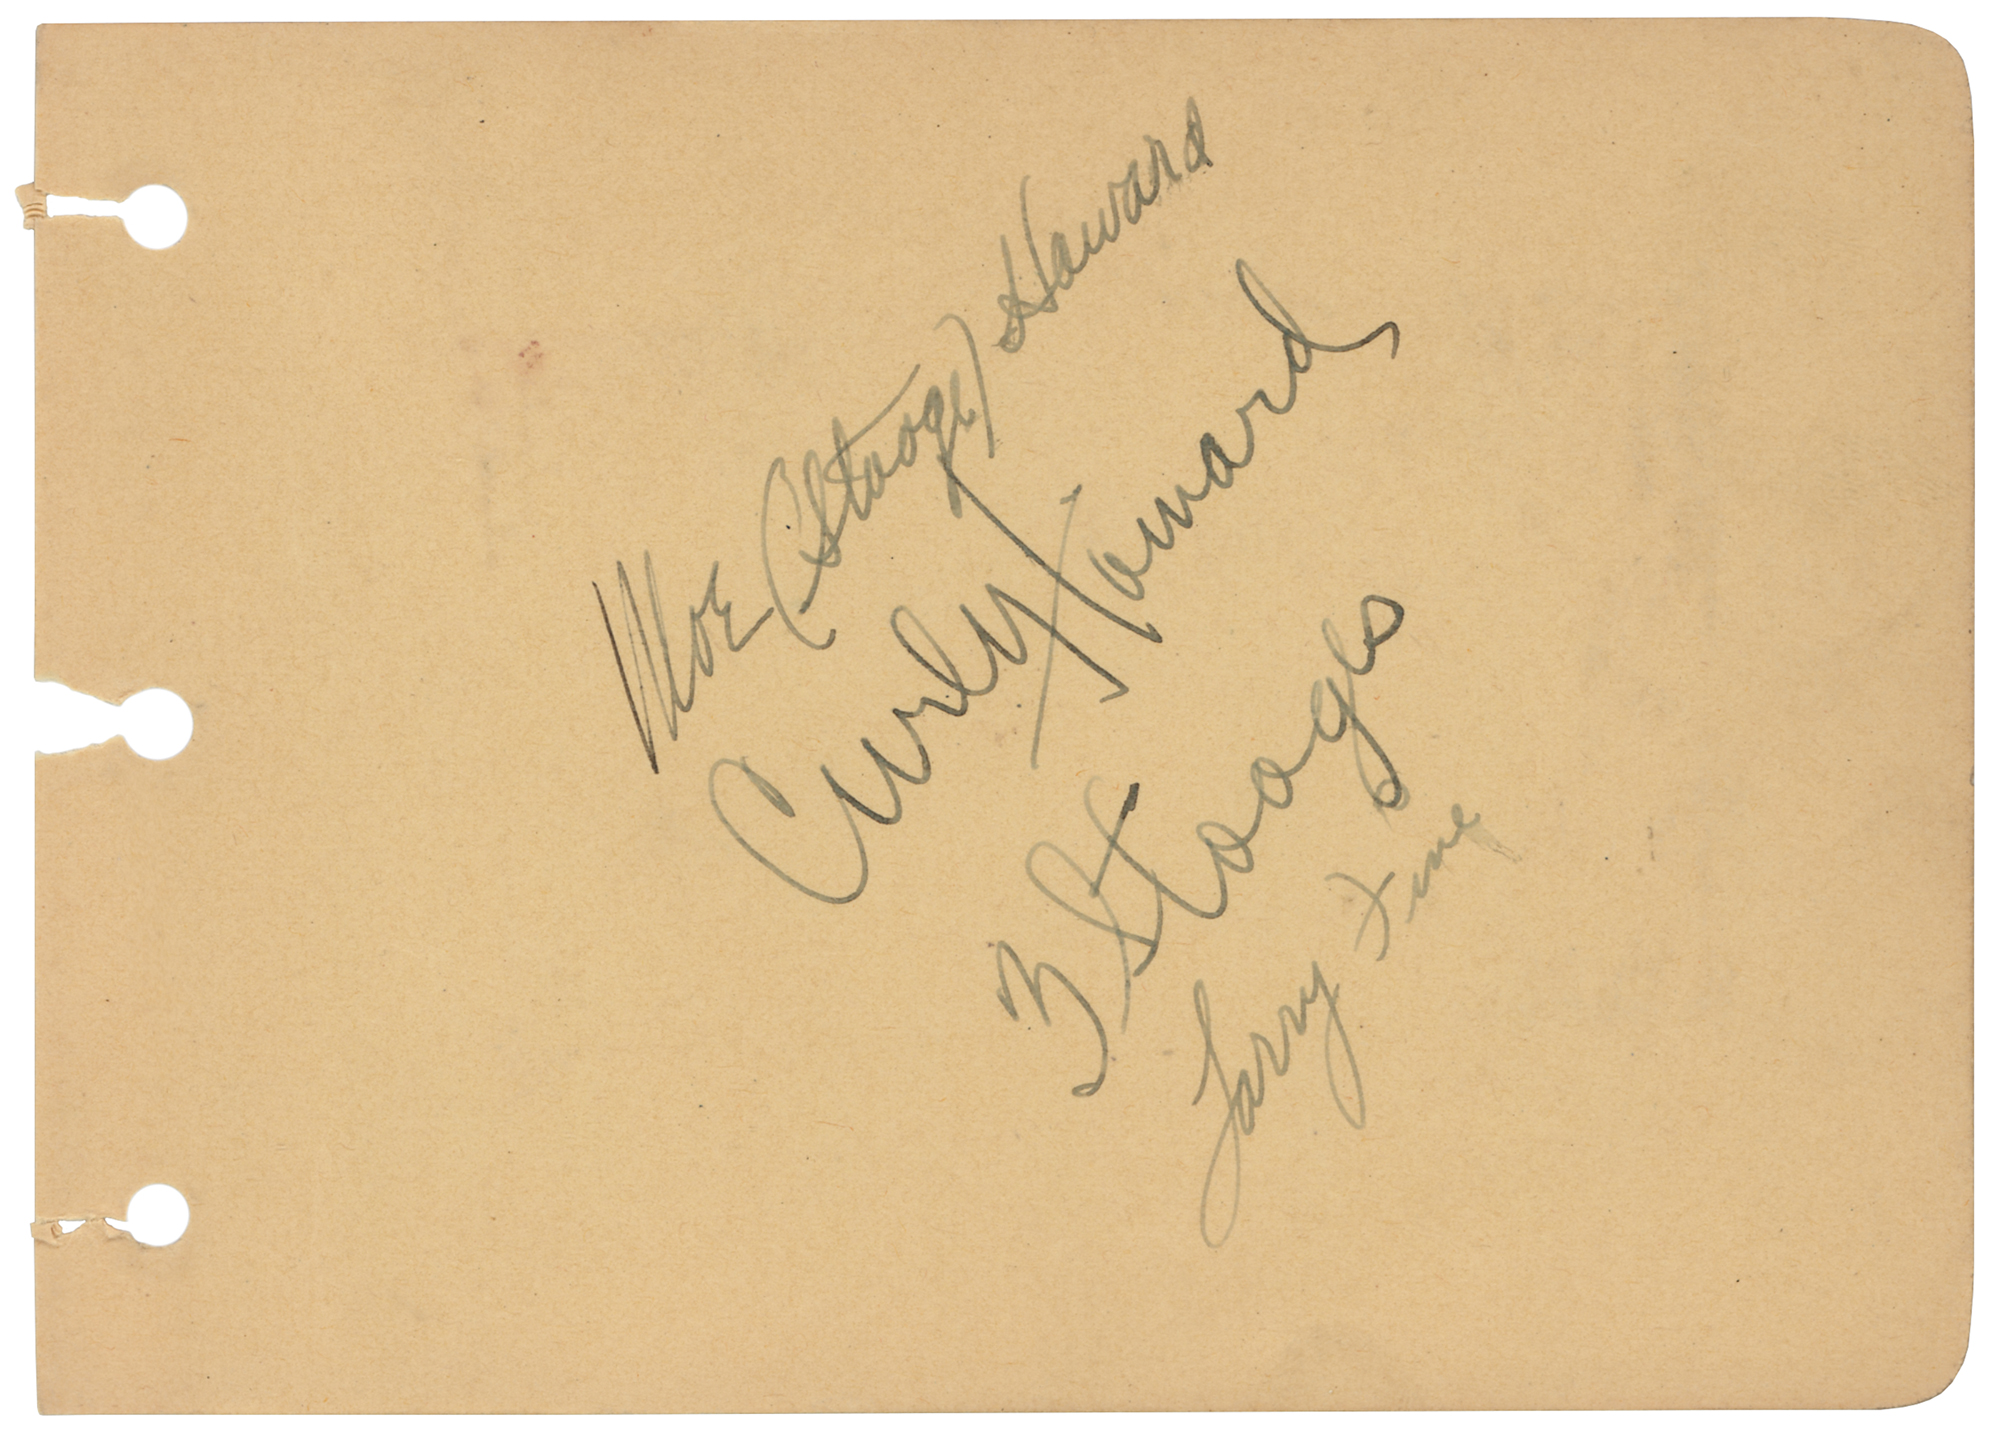 Moe (Stooge) Howard
Curly Howard
3 Stooges
Larry Fine